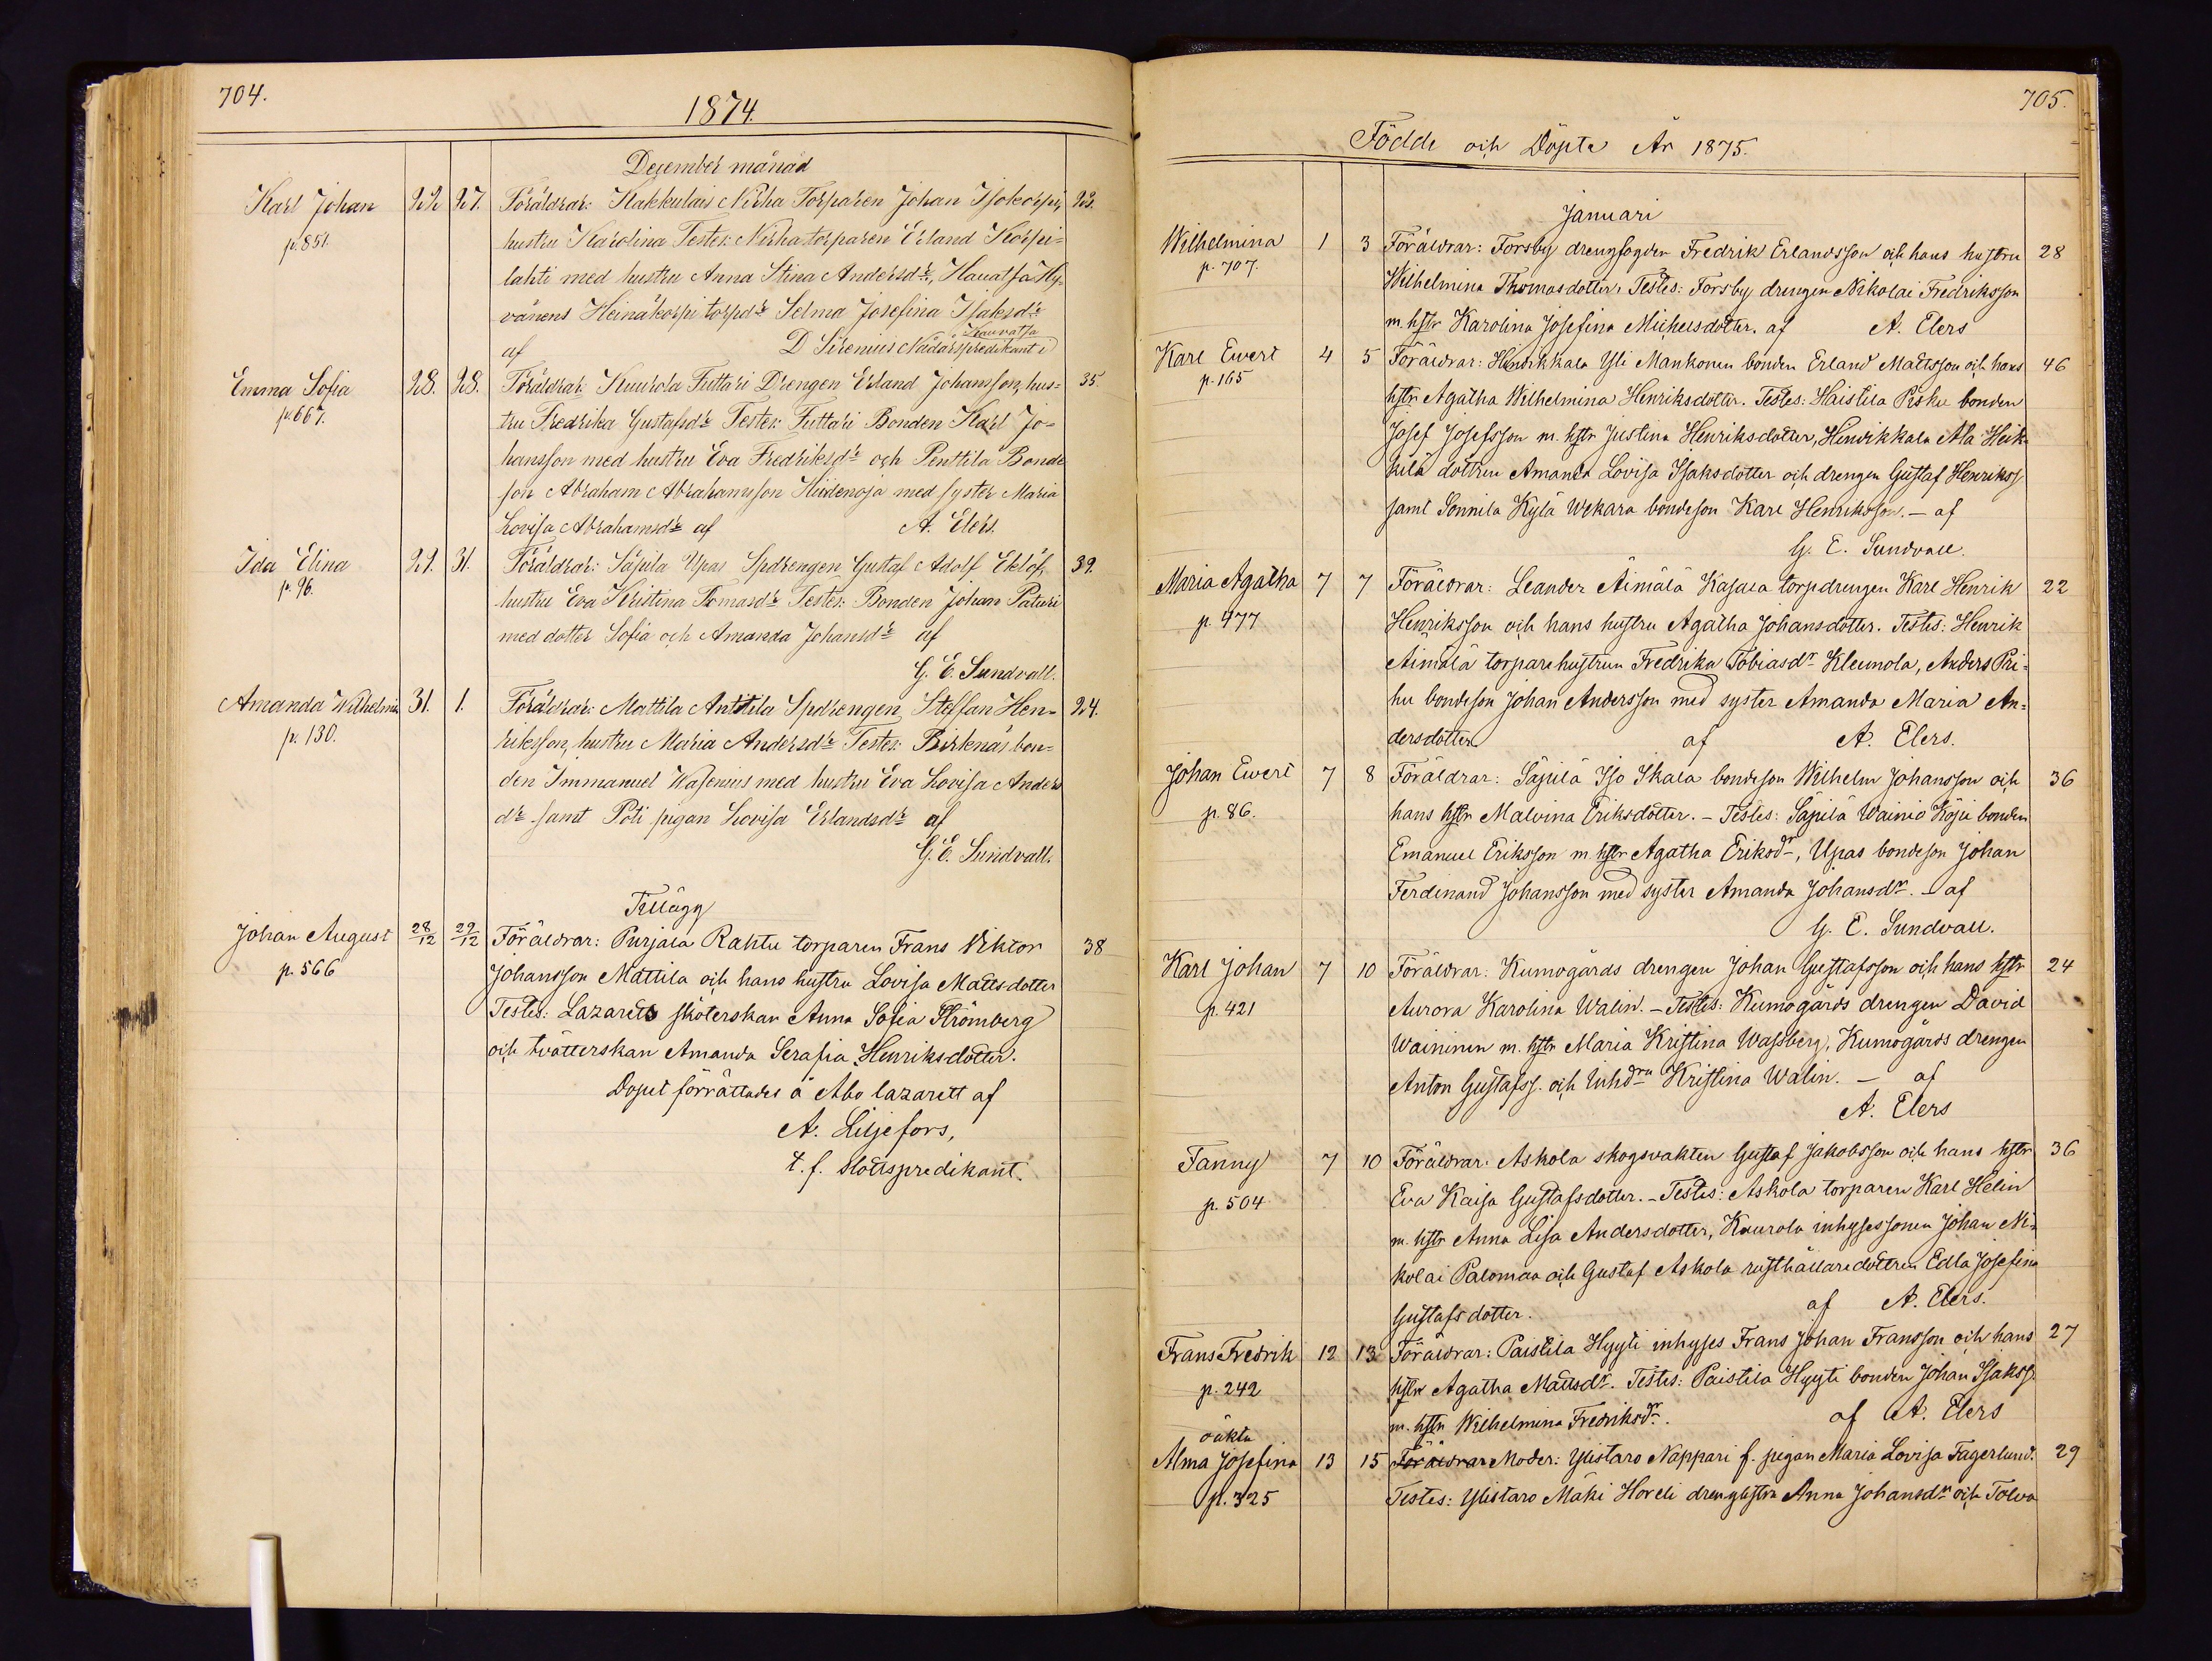 704.
1874.
December månad
Karl Johan 22 27. Föräldrar: Kakkulais Nirha Torparen Johan Isokorpi, 23.
p. 851. hustru Karolina Testes: Nirha torparen Erland Korpi=
lahti med hustru Anna Stina Andersdr, Hauatsa Hy-
vänens Heinäkorpi torpdr Selma Josefina Isaksdr
Kauvatsa
af D Sirenius Nådårspredikant i
Emma Sofia 28. 28. Föräldrar: Kuurola Futtari Drengen Erland Johansson, hus= 35.
p. 667. tru Fredrika Gustafsdr Testes: Futtari Bonden Karl Jo=
hansson med hustru Eva Fredriksdr och Penttila Bonde
son Abraham Abrahamsson Hiidenoja med syster Maria
Lovisa Abrahamsdr af A. Elers.
Ida Elina 29. 31. Föräldrar: Säpila Upas Spdrengen Gustaf Adolf Eklöf, 39.
p. 96. hustru Eva Kristina Tomasdr Testes: Bonden Johan Paturi
med dotter Sofia och Amanda Johansdr af
G. E. Sundvall.
Amanda Wilhelmin 31. 1. Föräldrar: Mattila Anttila Spdrengen Steffan Hen- 24.
p. 130. riksson, hustru Maria Andersdr Testes: Birkenäs bon=
den Immanuel Wasenius med hustru Eva Lovisa Anders
dr samt Poti pigan Lovisa Erlandsdr af
G. E. Sundvall.
Tillägg
Johan August 28/12 29/12 Föräldrar: Purjala Rahtu torparen Frans Viktor 38
p. 566 Johansson Mattila och hans hustru Lovisa Mattsdotter
Testes: Lazaretts sköterskan Anna Sofia Strömberg
och tvätterskan Amanda Serafia Henriksdotter.
Dopet förrättades å Åbo lazarett af
A. Liljefors,
t. f. slottspredikant.
705.
Födde och Döpte År 1875.
Januari
Wilhelmina 1 3 Föräldrar: Forsby drengfogden Fredrik Erlandsson och hans hustru 28
p. 707. Wilhelmina Thomasdotter. Testes: Forsby drengen Nikolai Fredriksson
m. hstr Karolina Josefina Michelsdotter. af A. Elers
Karl Ewert 4 5 Föräldrar: Henrikkala Yli Mankonen bonden Erland Mattsson och hans 46
p. 165 hstr Agatha Wilhelmina Henriksdotter. Testes: Haistila Pisku bonden
Josef Josefsson m. hstr Justina Henriksdotter, Henrikkala Ala Heik-
kilä dottren Amanda Lovisa Isaksdotter och drengen Gustaf Henrikss
samt Sonnila Kylä Wekara bondeson Karl Henriksson. — af
G. E. Sundvall.
Maria Agatha 7 7 Föräldrar: Leander Äimälä Kasala torpdrengen Karl Henrik 22
p. 477 Henriksson och hans hustru Agatha Johansdotter. Testes: Henrik
Äimälä torparehustrun Fredrika Tobiasdr Kleunola, Anders Pri=
hu bondeson Johan Andersson med syster Amanda Maria An=
dersdotter af A. Elers.
Johan Ewert 7 8 Föräldrar: Säpilä Iso Skala bondeson Wilhelm Johansson och 36
p. 86. hans hstr Malvina Eriksdotter. — Testes: Säpilä Wainio Köji bonden
Emanuel Eriksson m. hstr Agatha Eriksdr, Upas bondeson Johan
Ferdinand Johansson med syster Amanda Johansdr. — af
G. E. Sundvall.
Karl Johan 7 10 Föräldrar: Kumogårds drengen Johan Gustafsson och hans hstr 24
p. 421 Aurora Karolina Walin. — Testes: Kumogårds drengen David
Waininen m. hstr Maria Kristina Wassberg, Kumogårds drengen
Anton Gustafss. och Kristina Walin. — af
A. Elers
Fanny 7 10 Föräldrar: Askola skogsvakten Gustaf Jakobsson och hans hstr 36
p. 504 Eva Kaisa Gustafsdotter. — Testes: Askola torparen Karl Helin
m. hstr Anna Lisa Andersdotter, Kuurola inhysessonen Johan Ni-
kolai Palomaa och Gustaf Askola rusthållaredottren Edla Josefina
Gustafsdotter. af A. Elers.
Frans Fredrik 12 13 Föräldrar: Paistila Hyyti inhyses Frans Johan Fransson och hans 27
p. 242 hstr Agatha Mattsdr. Testes: Paistila Hyyti bonden Johan Isakss.
m. hstr Wilhelmina Fredriksdr. af A. Elers
oäkta
Alma Josefina 13 15 Föräldrar Moder: Ylistaro Näppari f. pigan Maria Lovisa Fagerlund. 29
p. 325 Testes: Ylistaro Mäki Horeli drenghstru Anna Johansdr och Tolva